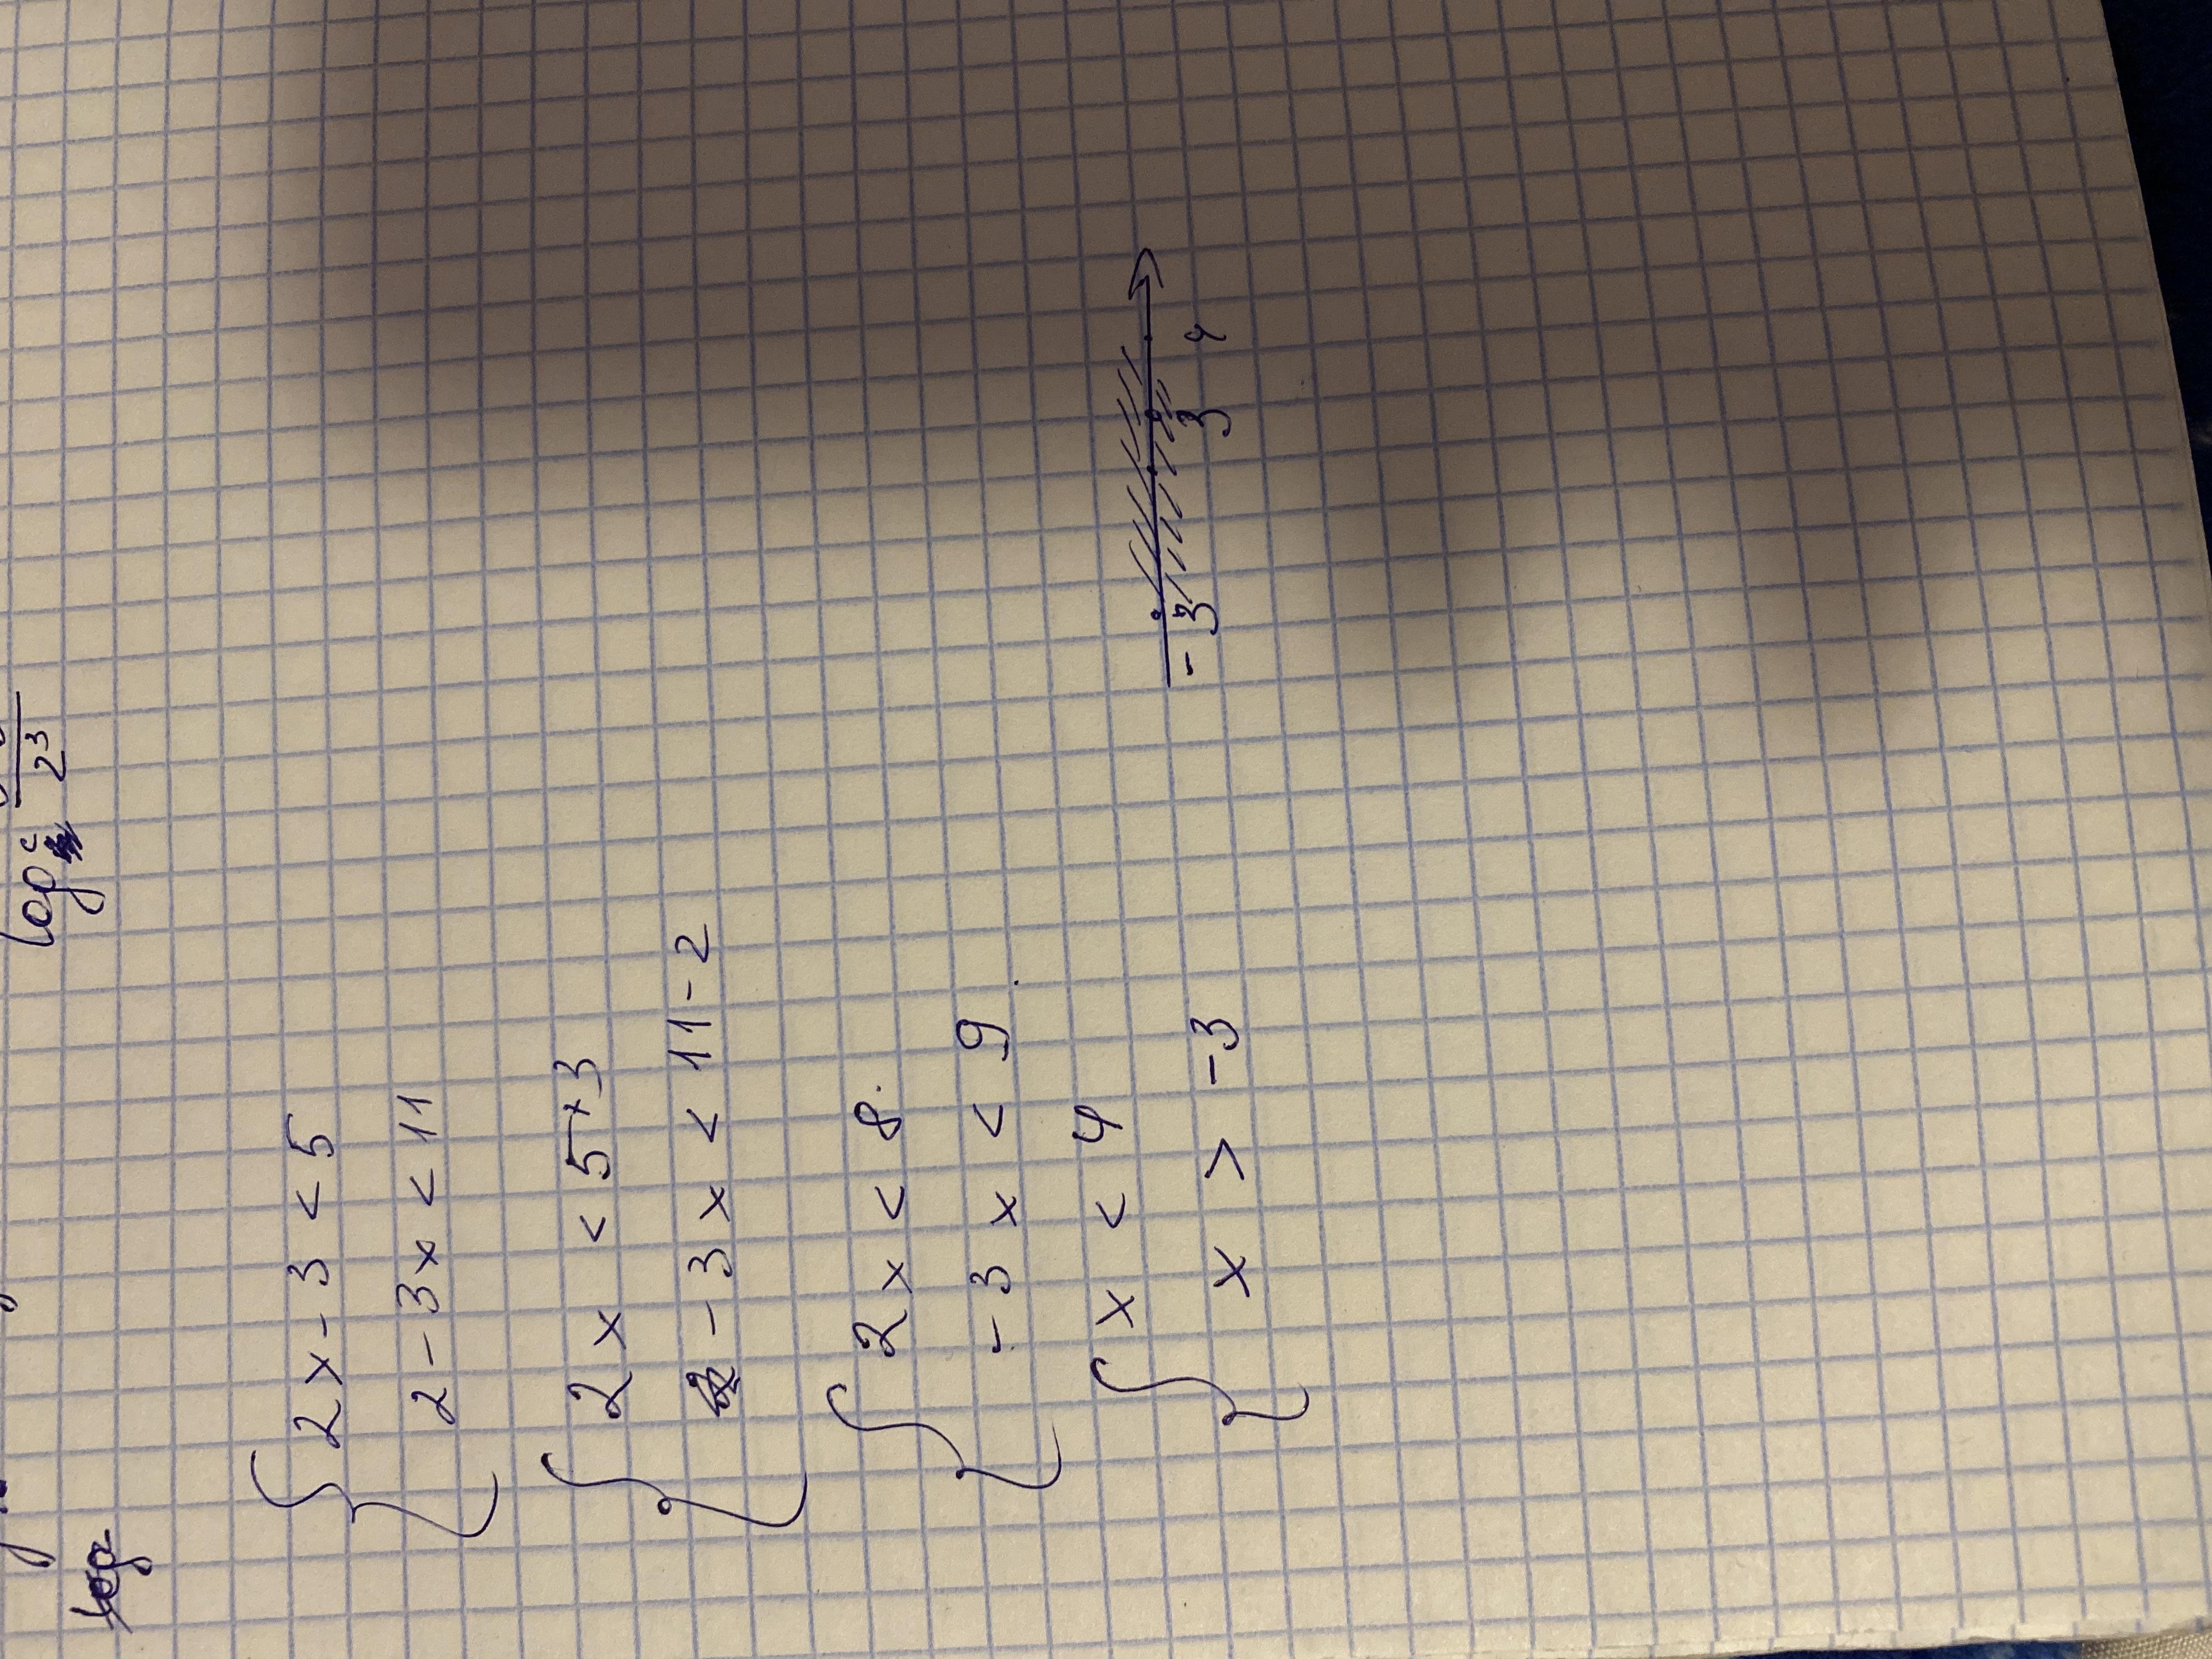 log 2³
log
2x - 3 < 5
2 - 3x < 11
2x < 5+3
-3x < 11-2
2x < 8.
-3x < 9
x < 4
x > -3
-3 3 4